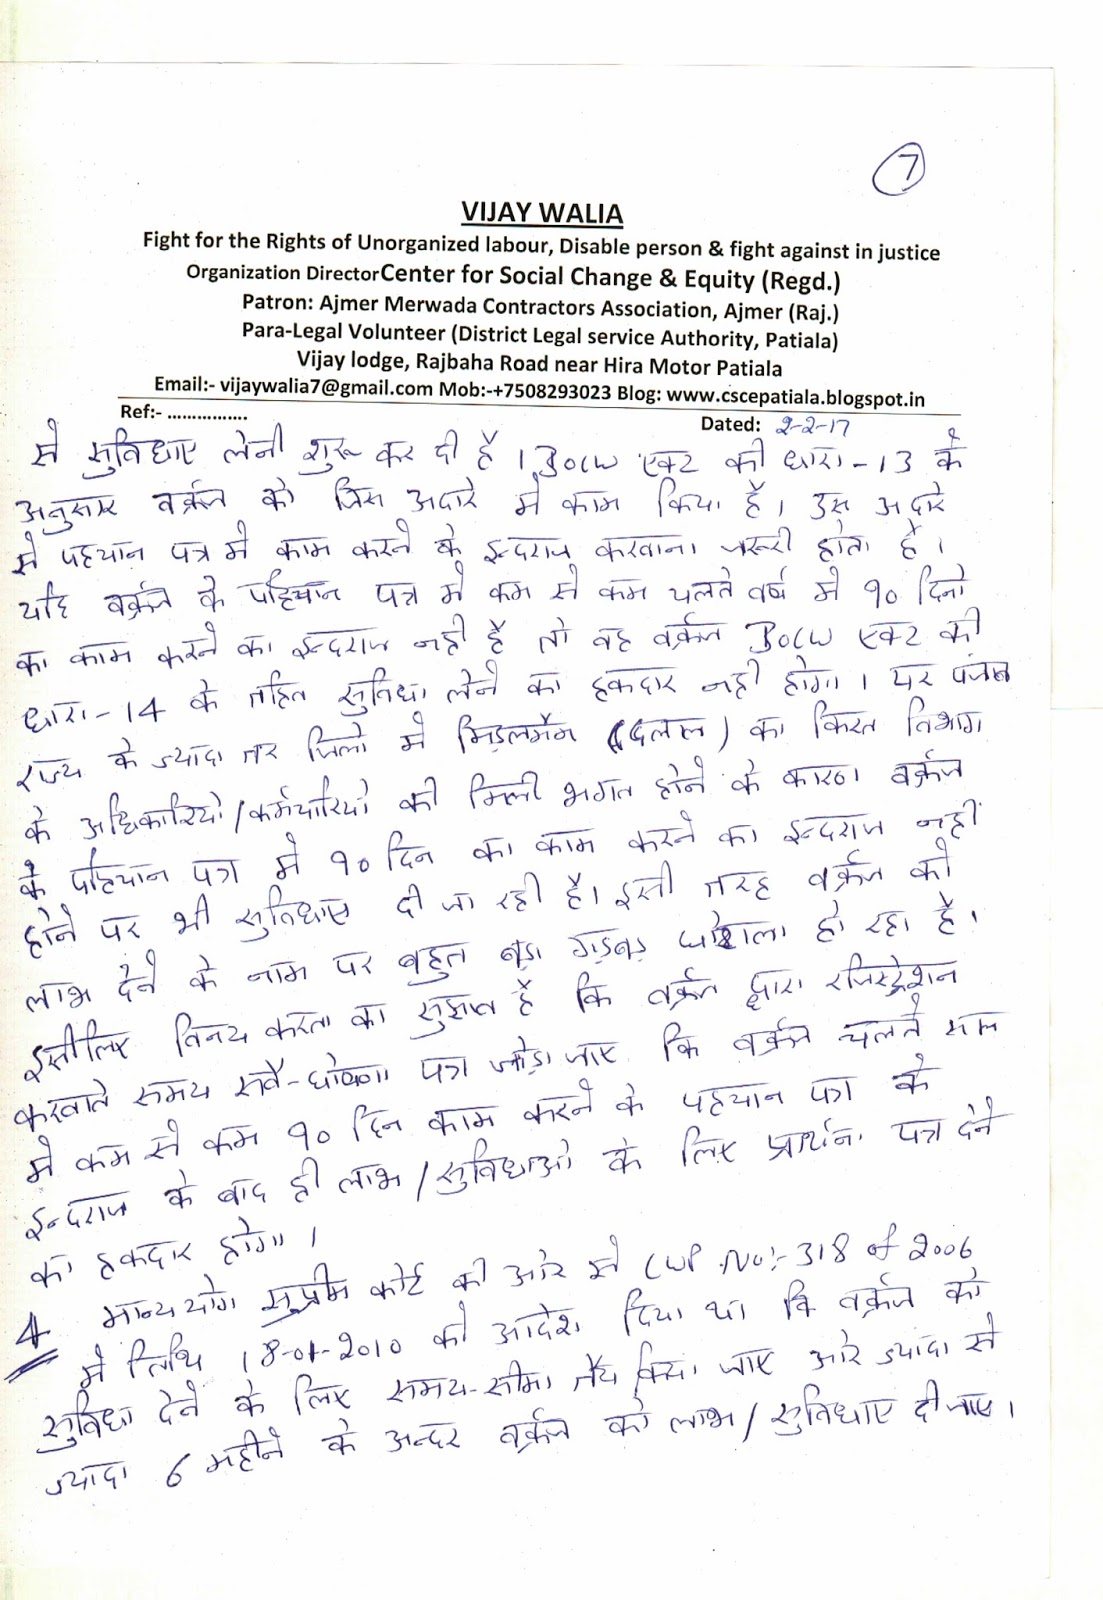 7
VIJAY WALIA
Fight for the Rights of Unorganized labour, Disable person & fight against in justice
Organization DirectorCenter for Social Change & Equity (Regd.)
Patron: Ajmer Merwada Contractors Association, Ajmer (Raj.)
Para-Legal Volunteer (District Legal service Authority, Patiala)
Vijay lodge, Rajbaha Road near Hira Motor Patiala
Email:- vijaywalia7@gmail.com Mob:-+7508293023 Blog: www.cscepatiala.blogspot.in
Ref:- ................
Dated: 2-2-17
से सुविधाए लेनी शुरू कर दी है । BOCW एक्ट की धारा-13 के
अनुसार वर्कज को जिस अदारे मे काम किया है। उस अदारे
से पहचान पत्र मे काम करने के इन्दराज करवाना जरूरी होता है ।
यदि वर्कज के पहिचान पत्र मे कम से कम चलते वर्ष मे ९० दिनो
का काम करने का इन्दराज नही है तो वह वर्कज BOCW एक्ट की
धारा-14 के तहित सुविधा लेने का हकदार नही होगा । पर पंजाब
राज्य के ज्यादा तर जिलो मे मिडलमैन (दलाल) का किरत विभाग
के अधिकारियो/कर्मचारियो की मिली भगत होने के कारण वर्कज
के पहिचान पत्र मे ९० दिन का काम करने का इन्दराज नहीं
होने पर भी सुविधाए दी जा रही है। इसी तरह वर्कज को
लाभ देने के नाम पर बहुत बड़ा गड़बड़ घोटाला हो रहा है ।
इसीलिए विनय करता का सुझाव है कि वर्कज द्वारा रजिस्ट्रेशन
करवाते समय सवै-घोषणा पत्र जोड़ा जाए कि वर्कज चलते साल
मे कम से कम ९० दिन काम करने के पहचान पत्र के
इन्दराज के बाद ही लाभ/सुविधाओ के लिए प्रार्थना पत्र देने
का हकदार होगा ।
4 मान्य योग सुप्रीम कोर्ट की ओर से CWP No:- 318 of 2006
मे तिथि 18-01-2010 को आदेश दिया था कि वर्कज को
सुविधा देने के लिए समय-सीमा तैय किया जाए और ज्यादा से
ज्यादा 6 महीने के अन्दर वर्कज को लाभ/सुविधाए दी जाए ।